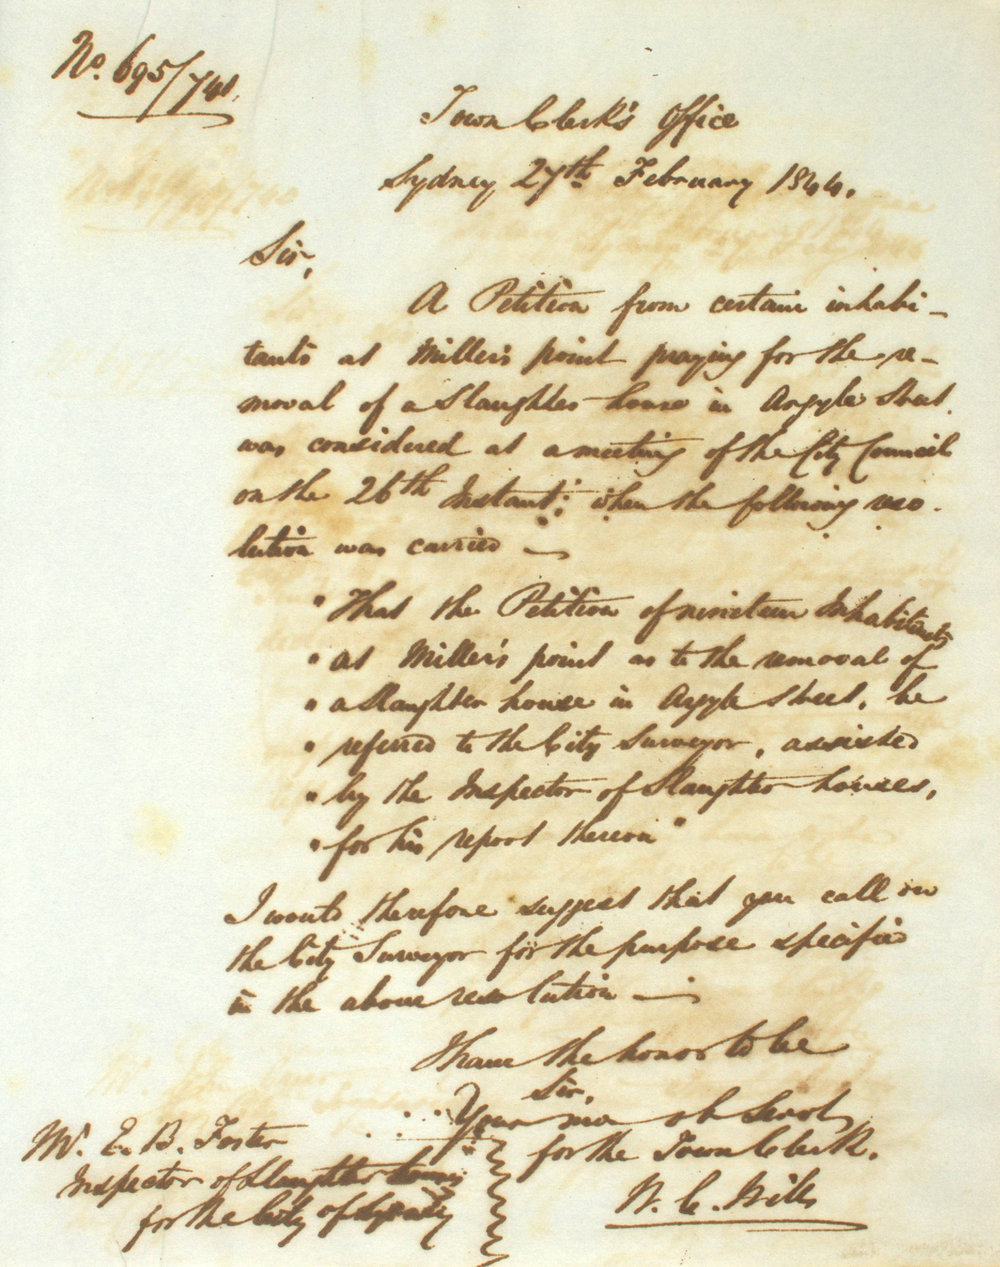 No. 695/741.
Town Clerk's Office
Sydney 27th February 1844.
Sir,
A Petition from certain inhabi-
tants at Miller's point praying for the re-
moval of a Slaughter house in Argyle Street.
was considered at a meeting of the City Council
on the 26th Instant; when the following reso-
lution was carried —
"That the Petition of nineteen Inhabitants
" at Miller's point as to the removal of
" a Slaughter house in Argyle Street, be
" referred to the City Surveyor, assisted
" by the Inspector of Slaughter houses,
" for his report thereon"
I would therefore suggest that you call on
the City Surveyor for the purpose specified
in the above resolution —
I have the honor to be
Sir,
Your mo ob Servt
for the Town Clerk.
W. C. Wills
Mr. E. B. Foster
Inspector of Slaughter houses
for the City of Sydney